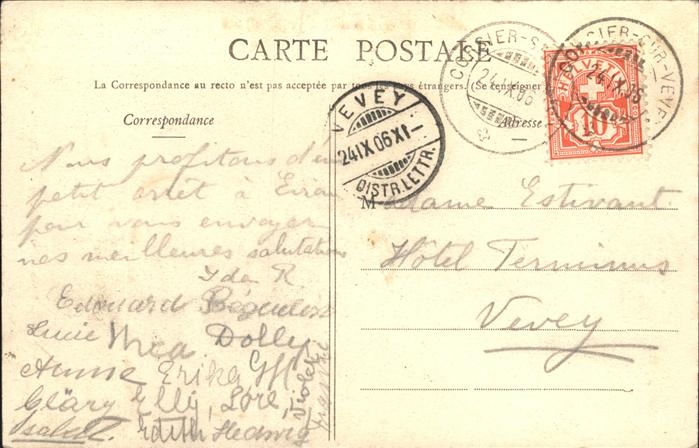 CARTE POSTALE
La Correspondance au recto n'est pas acceptée par tous les pays étrangers. (Se renseigner
Correspondance
Adresse
CORSIER-SUR-VEVEY
24.IX.06
CORSIER-SUR-VEVEY
24.IX.06
HELVETIA
10
VEVEY
24 IX 06 XI-
DISTR. LETTR.
Nous profitons d'un
petit arrêt à
pour vous envoyer
nos meilleures salutations
Ida R
Edouard
Lucie Thea Dolly
Anna Erika
Cläry Elly, Lore, Violet
Isabelle Edith Hedwig
Madame Estivant
Hôtel Terminus
Vevey